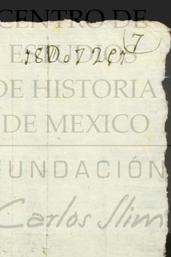 CENTRO DE
ESTUDIOS
7
DE HISTORIA
DE MEXICO
FUNDACIÓN
Carlos Slim